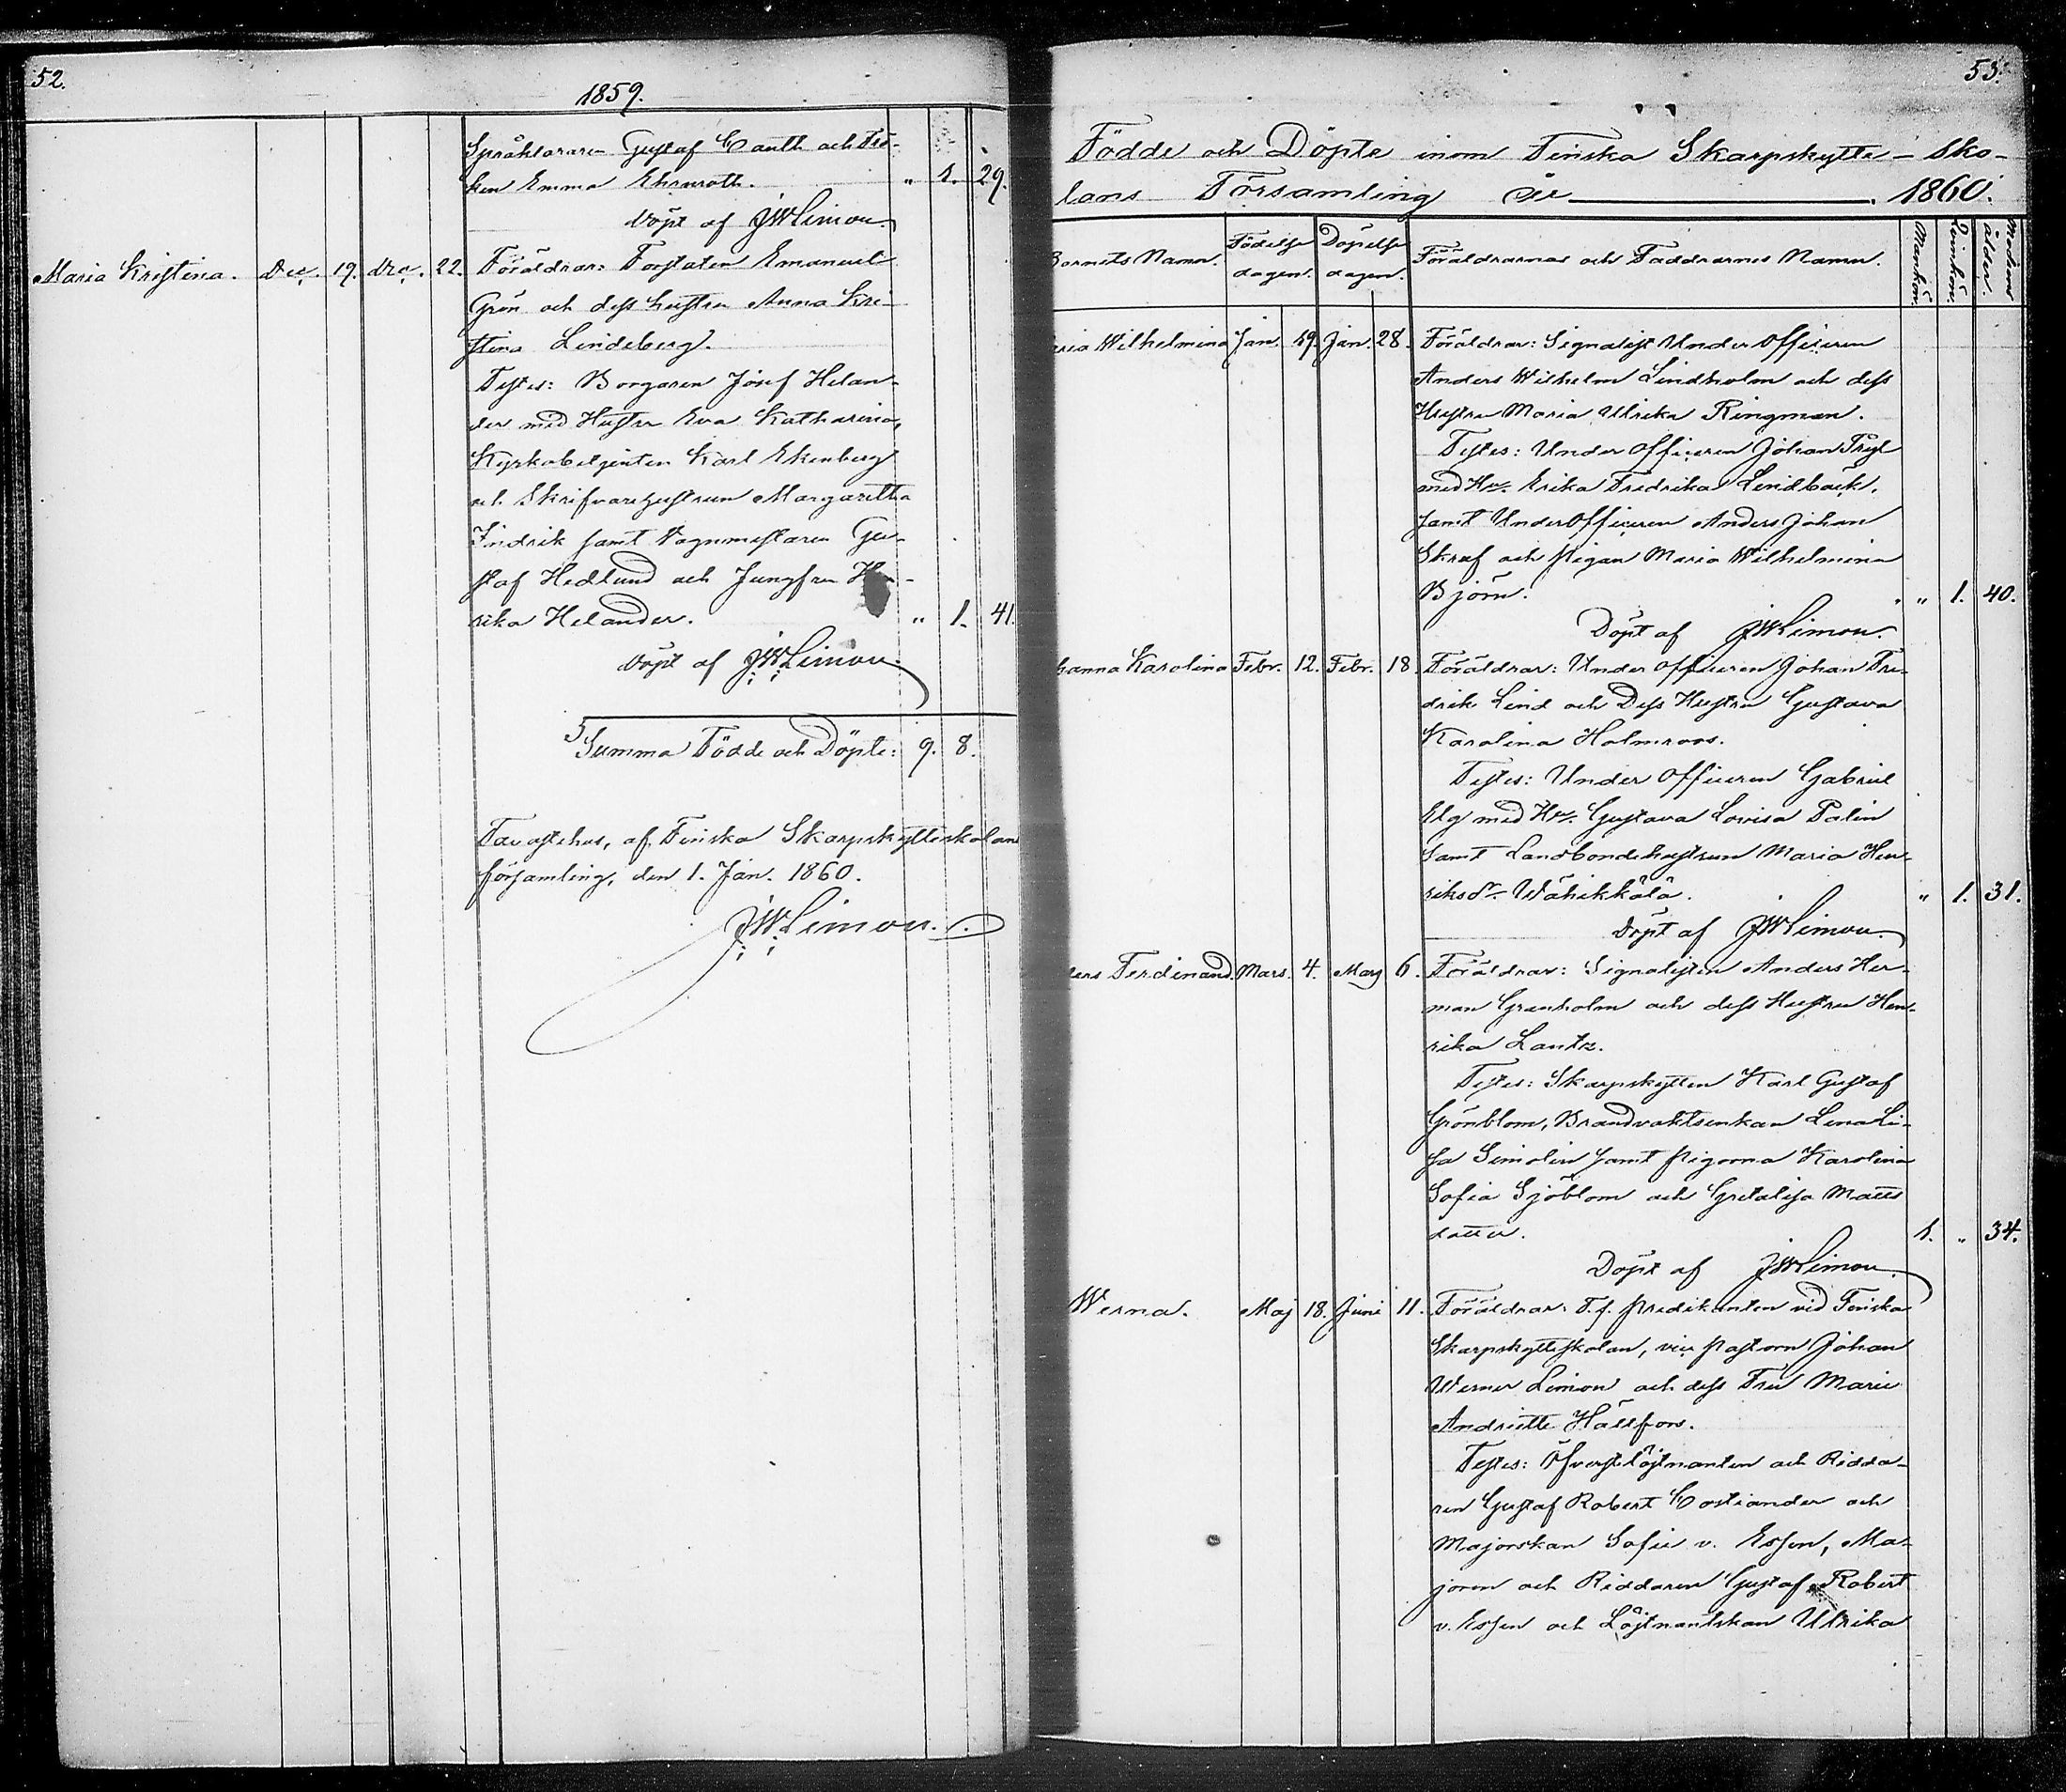 52.
1859.
Språkläraren Gustaf Cauth och Frö-
ken Emma Ehrnroth. " 1. 29.
Döpt af JWLimon.
Maria Kristina. Dec. 19. Dec. 22. Föräldrar: Forstaten Emanuel
Grön och dess hustru Anna Kri-
stina Lindeberg.
Testes: Borgaren Josef Helan-
der med Hustru Eva Katharina,
Kyrkobetjenten Karl Ekenberg
och Skrifvarehustrun Margaretha
Indrik samt Vagnmästaren Gu-
staf Hedlund och Jungfru
rika Helander. " 1. 41.
Döpt af JWLimon.
Summa Födde och Döpte: 9. 8.
Tavastehus, af Finska Skarpskytteskolans
församling, den 1. Jan. 1860.
JWLimon.
53.
Födde och Döpte inom Finska Skarpskytte-Sko-
lans Församling År 1860.
Barnets Namn. Födelse dagen. Döpelse dagen. Föräldrarnas och Faddrarnes Namn. Mankön. Qvinkön. Modrens ålder.
ria Wilhelmina Jan. 19. Jan. 28. Föräldrar: Signalist Under Officeren
Anders Wilhelm Lindholm och dess
Hustru Maria Ulrika Ringman.
Testes: Under Officeren Johan
med Hu. Erika Fredrika Lindbäck,
samt UnderOfficeren Anders Johan
Skraf och pigan Maria Wilhelmina
Björn. " 1. 40.
Döpt af JWLimon.
hanna Karolina Febr. 12. Febr. 18. Föräldrar: Under Officeren Johan Fre-
drik Lind och Dess Hustru Gustava
Karolina Holmroos.
Testes: Under Officeren Gabriel
Elg med Hu. Gustava Lovisa Palin
samt Landbondehustrun Maria Hen-
riksdr Wähikkälä. " 1. 31.
Döpt af JWLimon.
ders Ferdinand. Mars. 4. Mars 6. Föräldrar: Signalisten Anders Her-
man Granholm och dess Hustru Hen-
rika Lantz.
Testes: Skarpskytten Karl Gustaf
Grönblom, Brandvaktsenkan Lena Li-
sa Simolin samt pigorna Karolina
Sofia Sjöblom och Gretalisa Matts
dotter. 1. " 34.
Döpt af JWLimon.
Werna. Maj 18. Juni 11. Föräldrar: T. f. predikanten vid Finska
Skarpskytteskolan, vice pastorn Johan
Werner Limon och dess Fru Marie
Andriette Hällfors.
Testes: Öfverstelöjtnanten och Ridda-
ren Gustaf Robert Costiander och
Majorskan Sofie v. Essen, Ma-
joren och Riddaren Gustaf Robert
v. Essen och Löjtnantskan Ulrika